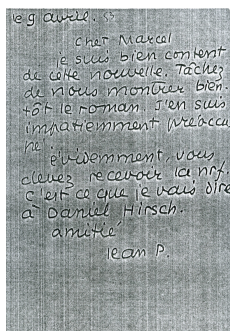 le 9 avril. 53
cher Marcel
je suis bien content
de cette nouvelle. Tâchez
de nous montrer bien-
tôt le roman. J'en suis
impatiemment préoccu
pé.
évidemment, vous
devez recevoir la nrf.
c'est ce que je vais dire
à Daniel Hirsch.
amitié
Jean P.